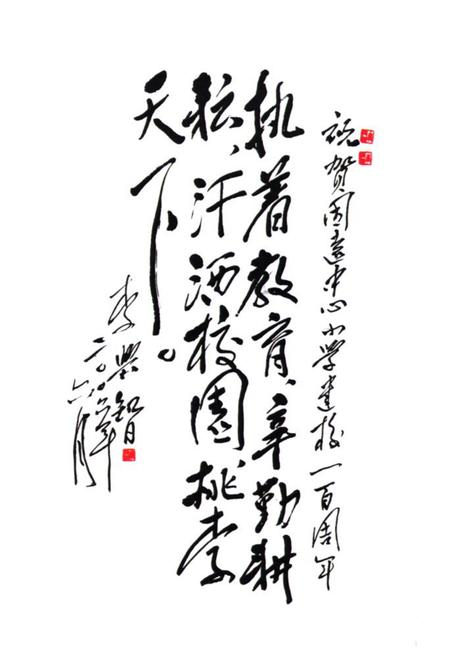 祝贺周远中心小学建校一百周年
执着教育，辛勤耕
耘，汗洒校园，桃李
天下。
李兴智
二〇〇六年六月